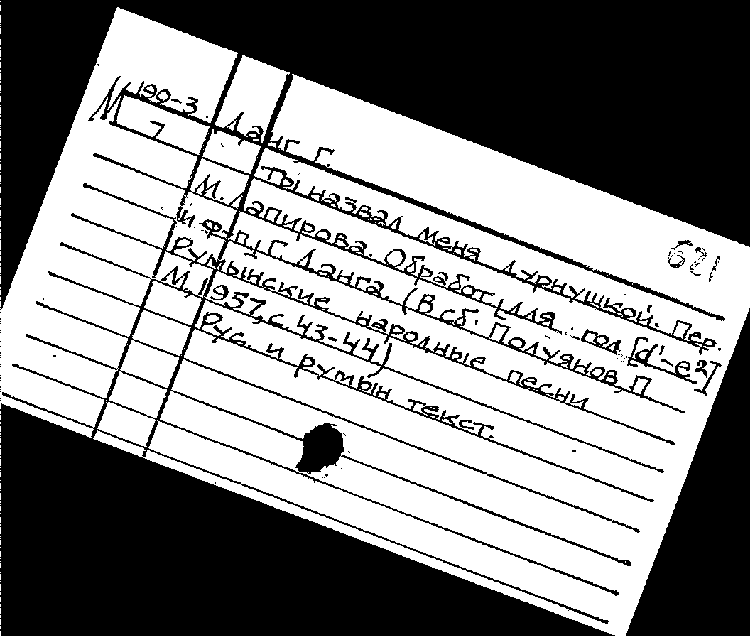 М 190-3 Данг, Г.
7 Ты назвал меня дурнушкой. Пер.
М. Лапирова. Обработ. для гол. [d¹-e²]
и ф-п. Г. Данга. (В сб: Полуянов, П
Румынские народные песни
М., 1957, с. 43-44)
Рус. и румын. текст.
621